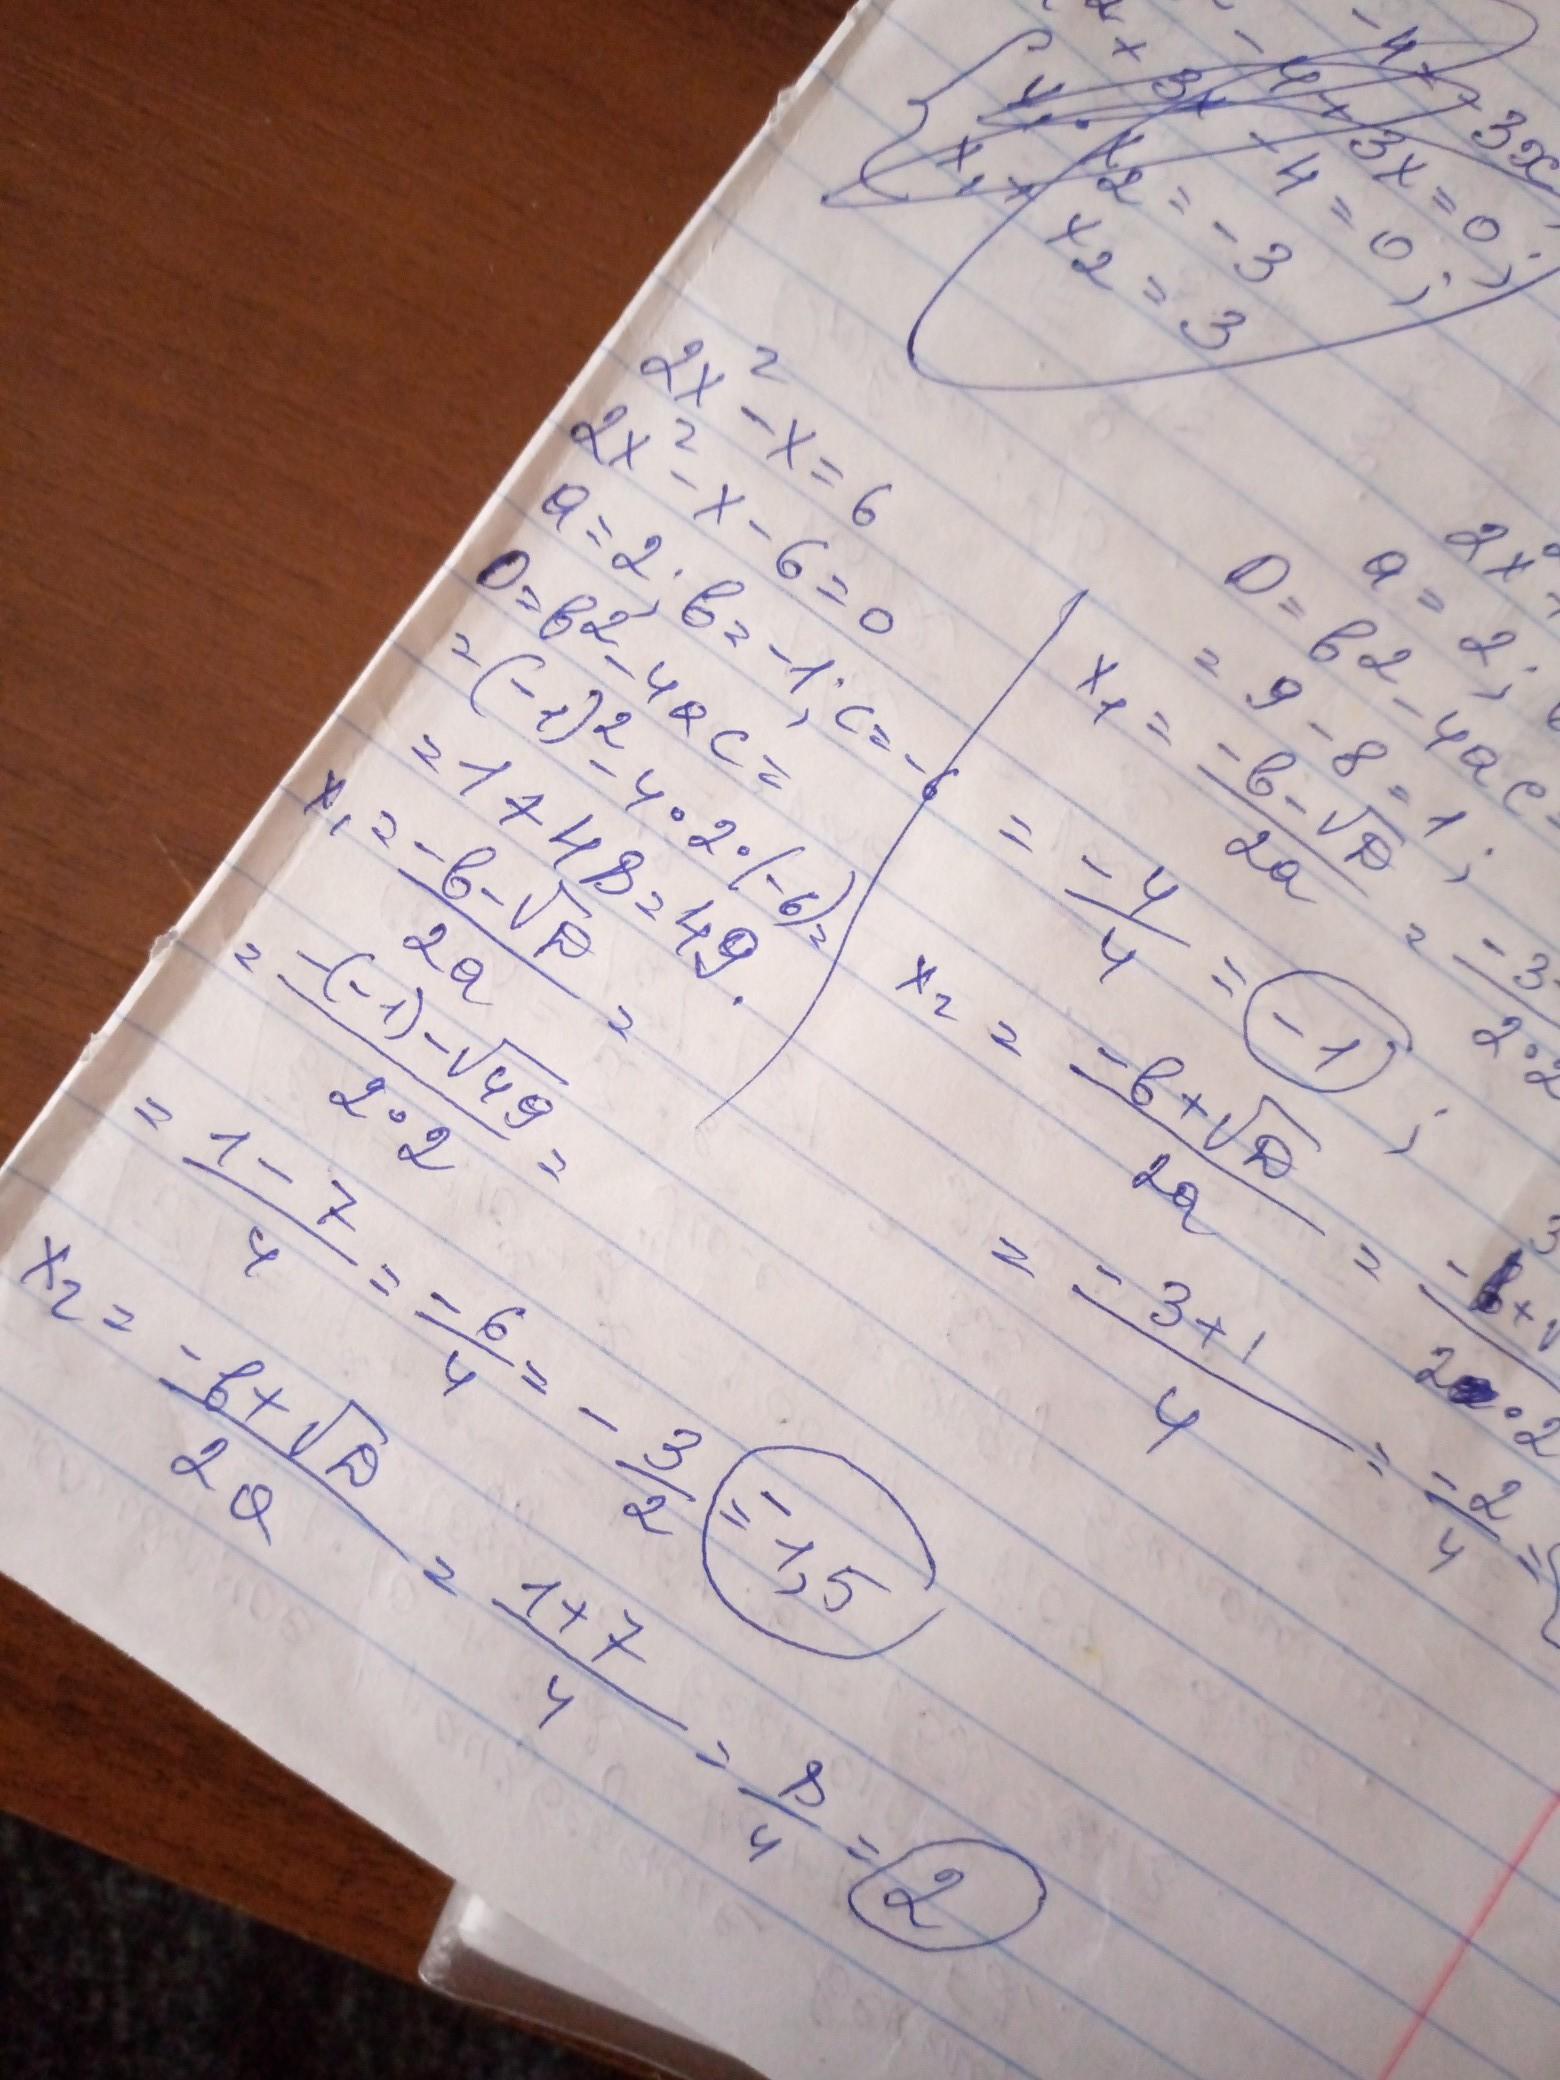 - 4x + 3x
x² - 4 + 3x = 0;
x² + 3x - 4 = 0;
x₁ · x₂ = -3
x₁ + x₂ = 3
2x² - x = 6
2x² - x - 6 = 0
a = 2; b = -1; c = -6
D = b2 - 4ac =
= (-1)2 - 4 · 2 · (-6) =
= 1 + 48 = 49.
x₁ = -b - √D / 2a =
= -(-1) - √49 / 2 · 2 =
= 1 - 7 / 4 = -6 / 4 = - 3 / 2 = -1,5
x₂ = -b + √D / 2a = 1 + 7 / 4 = 8 / 4 = 2
2x²
a = 2;
D = b2 - 4ac =
= 9 - 8 = 1;
x₁ = -b - √D / 2a = -3 / 2 · 2
= -4 / 4 = -1;
x₂ = -b + √D / 2a = -3 + / 2 · 2
= -3 + 1 / 4 = -2 / 4 =